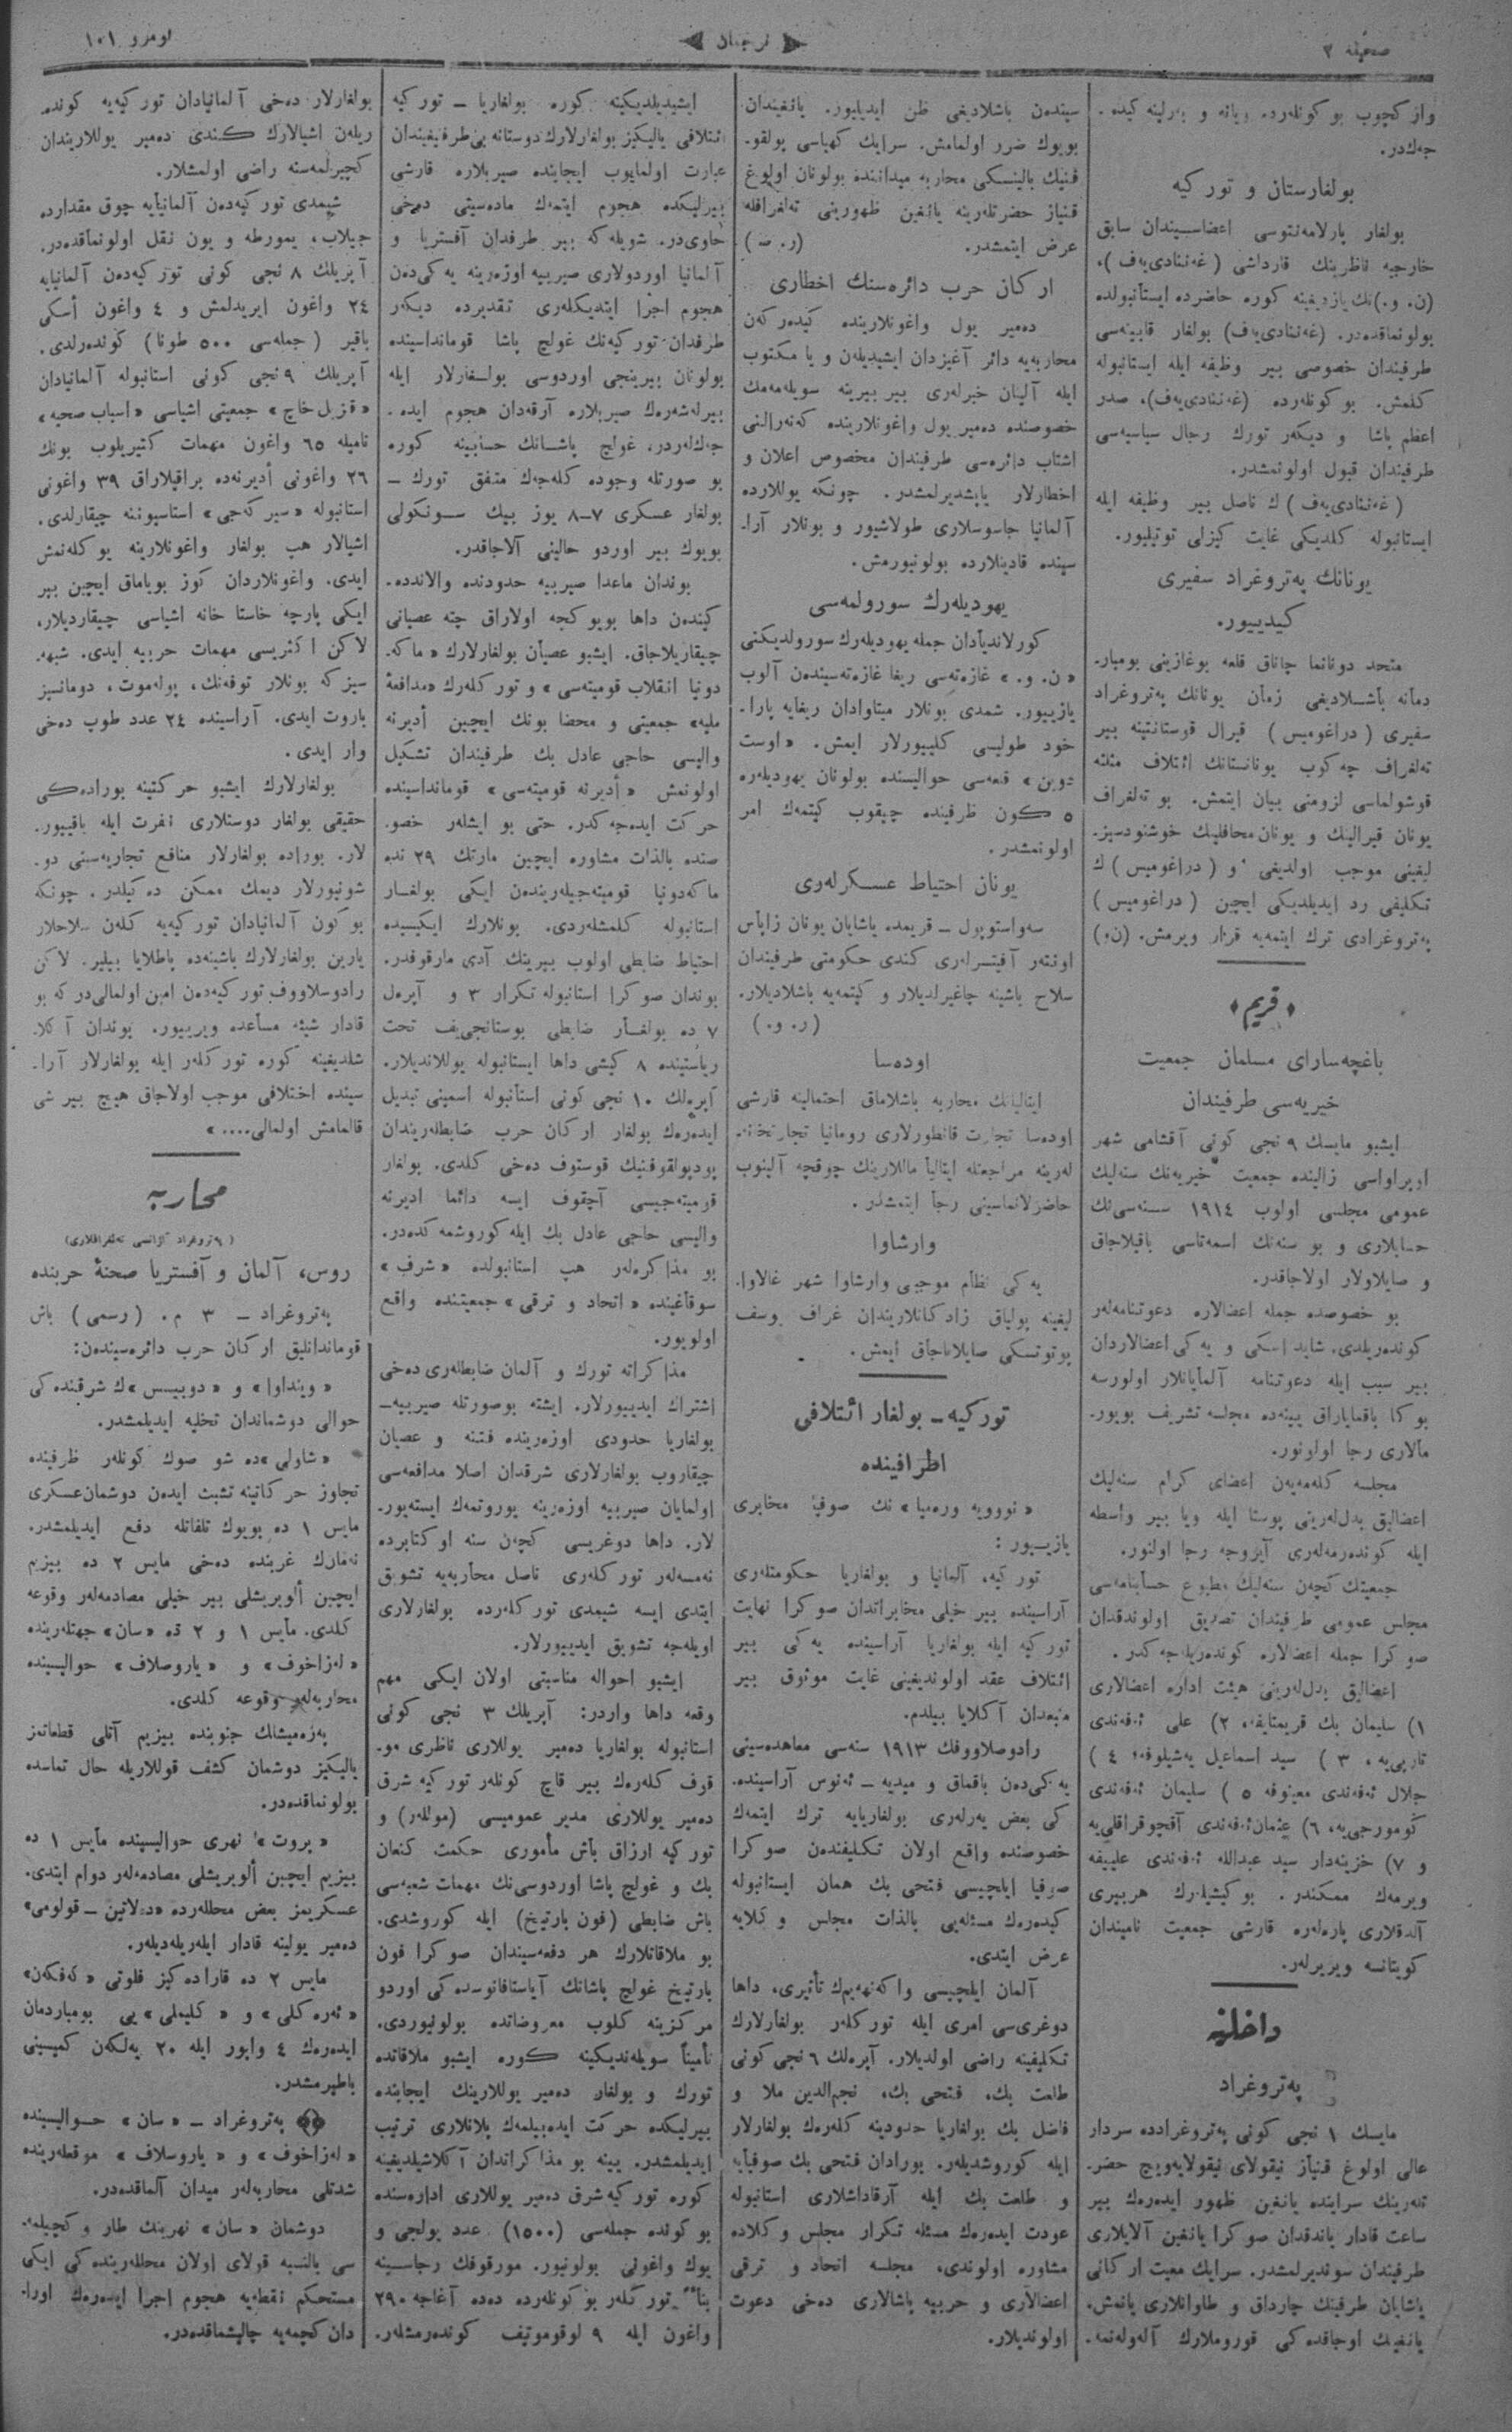 صحیفه ٢
ترجمان
نومرو ١٠١
واز کچوب بو کونلەردە ویانه و بەرلینه کیدە-
جەکدر.
بولغارستان و تورکیه
بولغار پارلامەنتوسی اعضاسیندان سابق
خارجیه ناظرینك قارداشی (غەننادی‌یەف)،
(ن. و.)نك یازدیغینه کورە حاضردە ایستانبولدە
بولونماقدەدر. (غەننادی‌یەف) بولغار قابینەسی
طرفیندان خصوصی بیر وظیفه ایله ایستانبوله
کلمش. بو کونلەردە (غەننادی‌یەف)، صدر
اعظم پاشا و دیکەر تورك رجال سیاسیەسی
طرفیندان قبول اولونمشدر.
(غەننادی‌یەف)ك ناصل بیر وظیفه ایله
ایستانبوله کلدیکی غایت کیزلی توتیلیور.
یونانك پەتروغراد سفیری
کیدیيور.
متحد دونانما چاناق قلعه بوغازینی بومبار-
دمانه باشلادیغی زمان یونانك پەتروغراد
سفیری (دراغومیس) قیرال قوستانتینه بیر
تەلغراف چەکوب یونانستانك ائتلاف مثلثه
قوشولماسی لزومنی بیان ایتمش. بو تەلغراف
یونان قیرالینك و یونان محافلینك خوشنودسیز-
لیغینی موجب اولدیغی و (دراغومیس)ك
تکلیفی رد ایدیلدیکی ایچین (دراغومیس)
پەتروغرادی ترك ایتمەیه قرار ویرمش. (ن.)
﴿قریم﴾
باغچەسارای مسلمان جمعیت
خیریەسی طرفیندان
ایشبو مایسك ٩ نجی کونی آقشامی شهر
اوپراواسی زالیندە جمعیت خیریەنك سنەلیك
عمومی مجلسی اولوب ١٩١٤ سنەسی‌نك
حسابلاری و بو سنەنك اسمەتاسی باقیلاجاق
و صایلاولار اولاجاقدر.
بو خصوصدە جمله اعضالارە دعوتنامەلەر
کوندەریلدی. شاید اسکی و یەکی اعضالاردان
بیر سبب ایله دعوتنامه آلمایانلار اولورسه
بوکا باقمایاراق یینەدە مجلسه تشریف بویور-
مالاری رجا اولونور.
مجلسه کلەمەیەن اعضای کرام سنەلیك
اعضالیق بدل‌لەرینی پوستا ایله ویا بیر واسطه
ایله کوندەرمەلەری آیروجه رجا اولنور.
جمعیتك کچەن سنەلیك مطبوع حسابنامەسی
مجلس عمومی طرفیندان تصدیق اولوندقدان
صوکرا جمله اعضالارە کوندەریلەجەکدر.
اعضالیق بدل‌لەرینی هیئت ادارە اعضالاری
١) سلیمان بك قریمتایفه، ٢) علی ئەفەندی
تارپی‌یه، ٣) سید اسماعیل یەشیلوفه؛ ٤)
جلال ئەفەندی معینوفه ٥) سلیمان ئەفەندی
کومورجی‌یه، ٦) عثمان‌ئەفەندی آقچوقراقلی‌یه
و ٧) خزینەدار سید عبدالله ئەفەندی علییفه
ویرمەك ممکندر. بو کیشیلەرك هربیری
آلدقلاری پارەلەرە قارشی جمعیت نامیندان
کویتانسه ویریرلەر.
داخلیه
پەتروغراد
مایسك ١ نجی کونی پەتروغراددە سردار
عالی اولوغ قنیاز نیقولای نیقولایەویچ حضر-
تلەرینك سرایندە یانغین ظهور ایدەرەك بیر
ساعت قادار یاندقدان صوکرا یانغین آلایلاری
طرفیندان سوندیرلمشدر. سرایك معیت ارکانی
یاشایان طرفینك چارداق و طاوانلاری یانمش.
یانغینك اوجاقدەکی قوروملارك آلەولەنمە-
سیندەن باشلادیغی ظن ایدیلیور. یانغیندان
بویوك ضرر اولمامش. سرایك کهیاسی پولقو-
فنیك بالینسکی محاربه میدانندە بولونان اولوغ
قنیاز حضرتلەرینه یانغین ظهورینی تەلغرافله
عرض ایتمشدر. (ر. ص)
ارکان حرب دائرەسنك اخطاری
دەمیر یول واغونلاریندە کیدەرکەن
محاربەیه دائر آغیزدان ایشیدیلەن و یا مکتوب
ایله آلینان خبرلەری بیر بیرینه سویلەمەمك
خصوصندە دەمیر یول واغونلاریندە کەنەرالنی
اشتاب دائرەسی طرفیندان مخصوص اعلان و
اخطارلار یاپشدیرلمشدر. چونکه یوللاردە
آلمانیا جاسوسلاری طولاشیور و بونلار آرا-
سیندە قادینلاردە بولونیورمش.
یهودیلەرك سورولمەسی
کورلاندیادان جمله یهودیلەرك سورولدیکنی
«ن. و.» غازەتەسی ریغا غازەتەسیندەن آلوب
یازییور. شمدی بونلار میتاوادان ریغایه پارا-
خود طولیسی کلییورلار ایمش. «اوست
دوین» قلعەسی حوالیسندە بولونان یهودیلەرە
٥ کون ظرفیندە چیقوب کیتمەك امر
اولونمشدر.
یونان احتیاط عسکرلەری
سەواستوپول – قریمدە یاشایان یونان زاپاس
اونتەر آفیتسرلەری کندی حکومتی طرفیندان
سلاح باشینه چاغیرلدیلار و کیتمەیه باشلادیلار.
(ر. و.)
اودەسا
ایتالیانك محاربه باشلاماق احتمالینه قارشی
اودەسا تجارت قانطورلاری رومانیا تجارتخانه-
لەرینه مراجعتله ایتالیا ماللارینك چوقچه آلینوب
حاضرلانماسینی رجا ایتمشدر.
وارشاوا
یەکی نظام موجبی وارشاوا شهر غالاوا-
لیغینه پولیاق زادکانلاریندان غراف یوسف
پوتوتسکی صایلاناجاق ایمش.
تورکیه – بولغار ائتلافی
اطرافیندە
«نوویە ورەمیا» نك صوفیه مخابری
یازییور:
تورکیه، آلمانیا و بولغاریا حکومتلەری
آراسیندە بیر خیلی مخابراتدان صوکرا نهایت
تورکیه ایله بولغاریا آراسیندە یەکی بیر
ائتلاف عقد اولوندیغینی غایت موثوق بیر
منبعدان آکلایا بیلدم.
رادوصلاووفك ١٩١٣ سنەسی معاهدەسینی
یەکی‌دەن باقماق و میدیه – ئەنوس آراسیندە-
کی بعض یەرلەری بولغاریایه ترك ایتمەك
خصوصندە واقع اولان تکلیفندەن صوکرا
صوفیا ایلچیسی فتحی بك همان ایستانبوله
کیدەرەك مسئلەیی بالذات مجلس وکلایه
عرض ایتدی.
آلمان ایلچیسی واکەنهەیم‌ك تأثیری، داها
دوغری‌سی امری ایله تورکلەر بولغارلارك
تکلیفینه راضی اولدیلار. آپرەلك ٦ نجی کونی
طلعت بك، فتحی بك، نجم‌الدین ملا و
فاضل بك بولغاریا حدودینه کلەرەك بولغارلار
ایله کوروشدیلەر. بورادان فتحی بك صوفیایه
و طلعت بك ایله آرقاداشلاری استانبوله
عودت ایدەرەك مسئله تکرار مجلس وکلادە
مشاورە اولوندی، مجلسه اتحاد و ترقی
اعضالاری و حربیه پاشالاری دەخی دعوت
اولوندیلار.
ایشیدیلدیکینه کورە بولغاریا – تورکیه
ائتلافی یالیکیز بولغارلارك دوستانه بی‌طرفیغیندان
عبارت اولمایوب ایجابندە صیربلارە قارشی
بیرلیکدە هجوم ایتمەك مادەسیتی دەخی
حاوی‌در. شویله که بیر طرفدان آفستریا و
آلمانیا اوردولاری صیربیه اوزەرینه یەکی‌دەن
هجوم اجرا ایتدیکلەری تقدیردە دیکەر
طرفدان تورکیەنك غولچ پاشا قومانداسیندە
بولونان بیرینجی اوردوسی بولغارلار ایله
بیرلەشەرەك صیربلارە آرقەدان هجوم ایدە-
جەك‌لەردر، غولچ پاشانك حسابینه کورە
بو صورتله وجودە کلەجەك متفق تورك –
بولغار عسکری ٧-٨ یوز بیك سونکولی
بویوك بیر اوردو حالینی آلاجاقدر.
بوندان ماعدا صیربیه حدودندە والاندە-
کیندەن داها بویوکجه اولاراق چته عصیانی
چیقاریلاجاق. ایشبو عصیان بولغارلارك «ماکه-
دونیا انقلاب قومیتەسی» و تورکلەرك «مدافعۀ
ملیه» جمعیتی و محضا بونك ایچین أدیرنه
والیسی حاجی عادل بك طرفیندان تشکیل
اولونمش «أدیرنه قومیتەسی» قومانداسیندە
حرکت ایدەجەکدر. حتی بو ایشلەر خصو-
صندە بالذات مشاورە ایچین مارتك ٢٩ ندە
ماکەدونیا قومیتەجیلەریندەن ایکی بولغار
استانبوله کلمشلەردی. بونلارك ایکیسیدە
احتیاط ضابطی اولوب بیرینك آدی مارقوفدر.
بوندان صوکرا استانبوله تکرار ٣ و آپرەل
٧ دە بولغار ضابطی بوستانجی‌یف تحت
ریاستیندە ٨ کیشی داها ایستانبوله یوللاندیلار.
آپرەلك ١٠ نجی کونی استانبوله اسمینی تبدیل
ایدەرەك بولغار ارکان حرب ضابطلەریندان
پودپولقوفنیك قوستوف دەخی کلدی. بولغار
قومیتەجیسی آچقوف ایسه دائما ادیرنه
والیسی حاجی عادل بك ایله کوروشمەکدەدر.
بو مذاکرەلەر هپ استانبولدە «شرف»
سوقاغیندە «اتحاد و ترقی» جمعیتندە واقع
اولویور.
مذاکراته تورك و آلمان ضابطلەری دەخی
اشتراك ایدییورلار. ایشته بوصورتله صیربیه–
بولغاریا حدودی اوزەریندە فتنه و عصیان
چیقاروب بولغارلاری شرقدان اصلا مدافعەسی
اولمایان صیربیه اوزەرینه یوروتمەك ایستەیور-
لار. داها دوغریسی کچەن سنه اوکتابردە
نەمسەلەر تورکلەری ناصل محاربەیه تشویق
ایتدی ایسه شیمدی تورکلەردە بولغارلاری
اویلەجه تشویق ایدییورلار.
ایشبو احواله مناسبتی اولان ایکی مهم
وقعه داها واردر: آپریلك ٣ نجی کونی
استانبوله بولغاریا دەمیر یوللاری ناظری مو-
قوف کلەرەك بیر قاچ کونلەر تورکیه شرق
دەمیر یوللاری مدیر عمومیسی (موللەر) و
تورکیه ارزاق باش مأموری حکمت کنعان
بك و غولچ پاشا اوردوسی‌نك مهمات شعبەسی
باش ضابطی (فون بارتیخ) ایله کوروشدی.
بو ملاقاتلارك هر دفعەسیندان صوکرا فون
بارتیخ غولچ پاشانك آیاستافانوسدەکی اوردو
مرکزینه کلوب معروضاتدە بولونیوردی.
تأمیناً سویلەندیکینه کورە ایشبو ملاقاتدە
تورك و بولغار دەمیر یوللارینك ایجابندە
بیرلیکدە حرکت ایدەبیلمەك پلانلاری ترتیب
ایدیلمشدر. یینه بو مذاکراتدان آکلاشیلدیغینه
کورە تورکیه شرق دەمیر یوللاری ادارەسندە
بو کوندە جملەسی (١٥٠٠) عدد یولجی و
یوك واغونی بولونیور. مورقوفك رجاسینه
بناءً تورکلەر بو کونلەردە دەدە آغاجه ٢٩٠
واغون ایله ٩ لوقوموتیف کوندەرمشلەر.
بولغارلار دەخی آلمانیادان تورکیەیه کوندە-
ریلەن اشیالارك کندی دەمیر یوللاریندان
کچیرلمەسنه راضی اولمشلار.
شیمدی تورکیەدەن آلمانیایه چوق مقداردە
جیلاب، یمورطه و یون نقل اولونماقدەدر.
آپریلك ٨ نجی کونی تورکیەدەن آلمانیایه
٢٤ واغون ایریدلمش و ٤ واغون أسکی
باقیر (جملەسی ٥٠٠ طونا) کوندەرلدی.
آپریلك ٩ نجی کونی استانبوله آلمانیادان
«قزیل خاچ» جمعیتی اشیاسی «اسباب صحیه»
نامیله ٦٥ واغون مهمات کتیریلوب بونك
٢٦ واغونی أدیرنەدە براقیلاراق ٣٩ واغونی
استانبوله «سیرکەجی» استاسیوننه چیقارلدی.
اشیالار هپ بولغار واغونلارینه یوکلەنمش
ایدی. واغونلاردان کوز بویاماق ایچین بیر
ایکی پارچه خاستا خانه اشیاسی چیقاردیلار،
لاکن اکثریسی مهمات حربیه ایدی. شبهه-
سیزکه بونلار توفەنك، پولەموت، دومانسیز
باروت ایدی. آراسیندە ٢٤ عدد طوپ دەخی
وار ایدی.
بولغارلارك ایشبو حرکتینه بورادەکی
حقیقی بولغار دوستلاری نفرت ایله باقییور-
لار. بورادە بولغارلار منافع تجاریەسینی دو-
شونیورلار دیمك ممکن دەکیلدر. چونکه
بو کون آلمانیادان تورکیەیه کلەن سلاحلار
یارین بولغارلارك باشیندە پاطلایا بیلیر. لاکن
رادوسلاووف تورکیەدەن امین اولمالی‌درکه بو
قادار شیئه مساعدە ویرییور. بوندان آکلا-
شلدیغینه کورە تورکلەر ایله بولغارلار آرا-
سیندە اختلافی موجب اولاجاق هیچ بیر شی
قالمامش اولمالی....»
محاربه
(پەتروغراد آژانسی تەلغرافلاری)
روس، آلمان و آفستریا صحنۀ حربندە
پەتروغراد – ٣ م. (رسمی) باش
قوماندانلیق ارکان حرب دائرەسیندەن:
«وینداوا» و «دوبیسس»ك شرقندەکی
حوالی دوشماندان تخلیه ایدیلمشدر.
«شاولی»دە شو صوك کونلەر ظرفیندە
تجاوز حرکاتینه تشبث ایدەن دوشمان‌عسکری
مایس ١ دە بویوك تلفاتله دفع ایدیلمشدر.
نەمانك غربندە دەخی مایس ٢ دە بیزیم
ایچین ألویریشلی بیر خیلی مصادمەلەر وقوعه
کلدی. مایس ١ و ٢ دە «سان» جهتلەریندە
«لەزاخوف» و «یاروصلاف» حوالیسیندە
محاربەلەر وقوعه کلدی.
پەرەمیشلك جنوبندە بیزیم آتلی قطعاتمز
یالیکیز دوشمان کشف قوللاریله حال تماسدە
بولونماقدەدر.
«پروت» نهری حوالیسیندە مایس ١ دە
بیزیم ایچین ألویریشلی مصادمەلەر دوام ایتدی.
عسکریمز بعض محللەردە «دەلاتین – قولومی»
دەمیر یولینه قادار ایلەریلەدیلەر.
مایس ٢ دە قارا دەکیز فلوتی «کەفکەن»
«ئەرەکلی» و «کلیملی» یی بومباردمان
ایدەرەك ٤ واپور ایله ٢٠ یەلکەن کمیسینی
باطیرمشدر.
پەتروغراد – «سان» حوالیسیندە
«لەزاخوف» و «یاروسلاف» موقعلەریندە
شدتلی محاربەلەر میدان آلماقدەدر.
دوشمان «سان» نهرینك طار و کچیلمە-
سی بالنسبه قولای اولان محللەریندەکی ایکی
مستحکم نقطەیه هجوم اجرا ایدەرەك اورا-
دان کچمەیه چالیشماقدەدر.